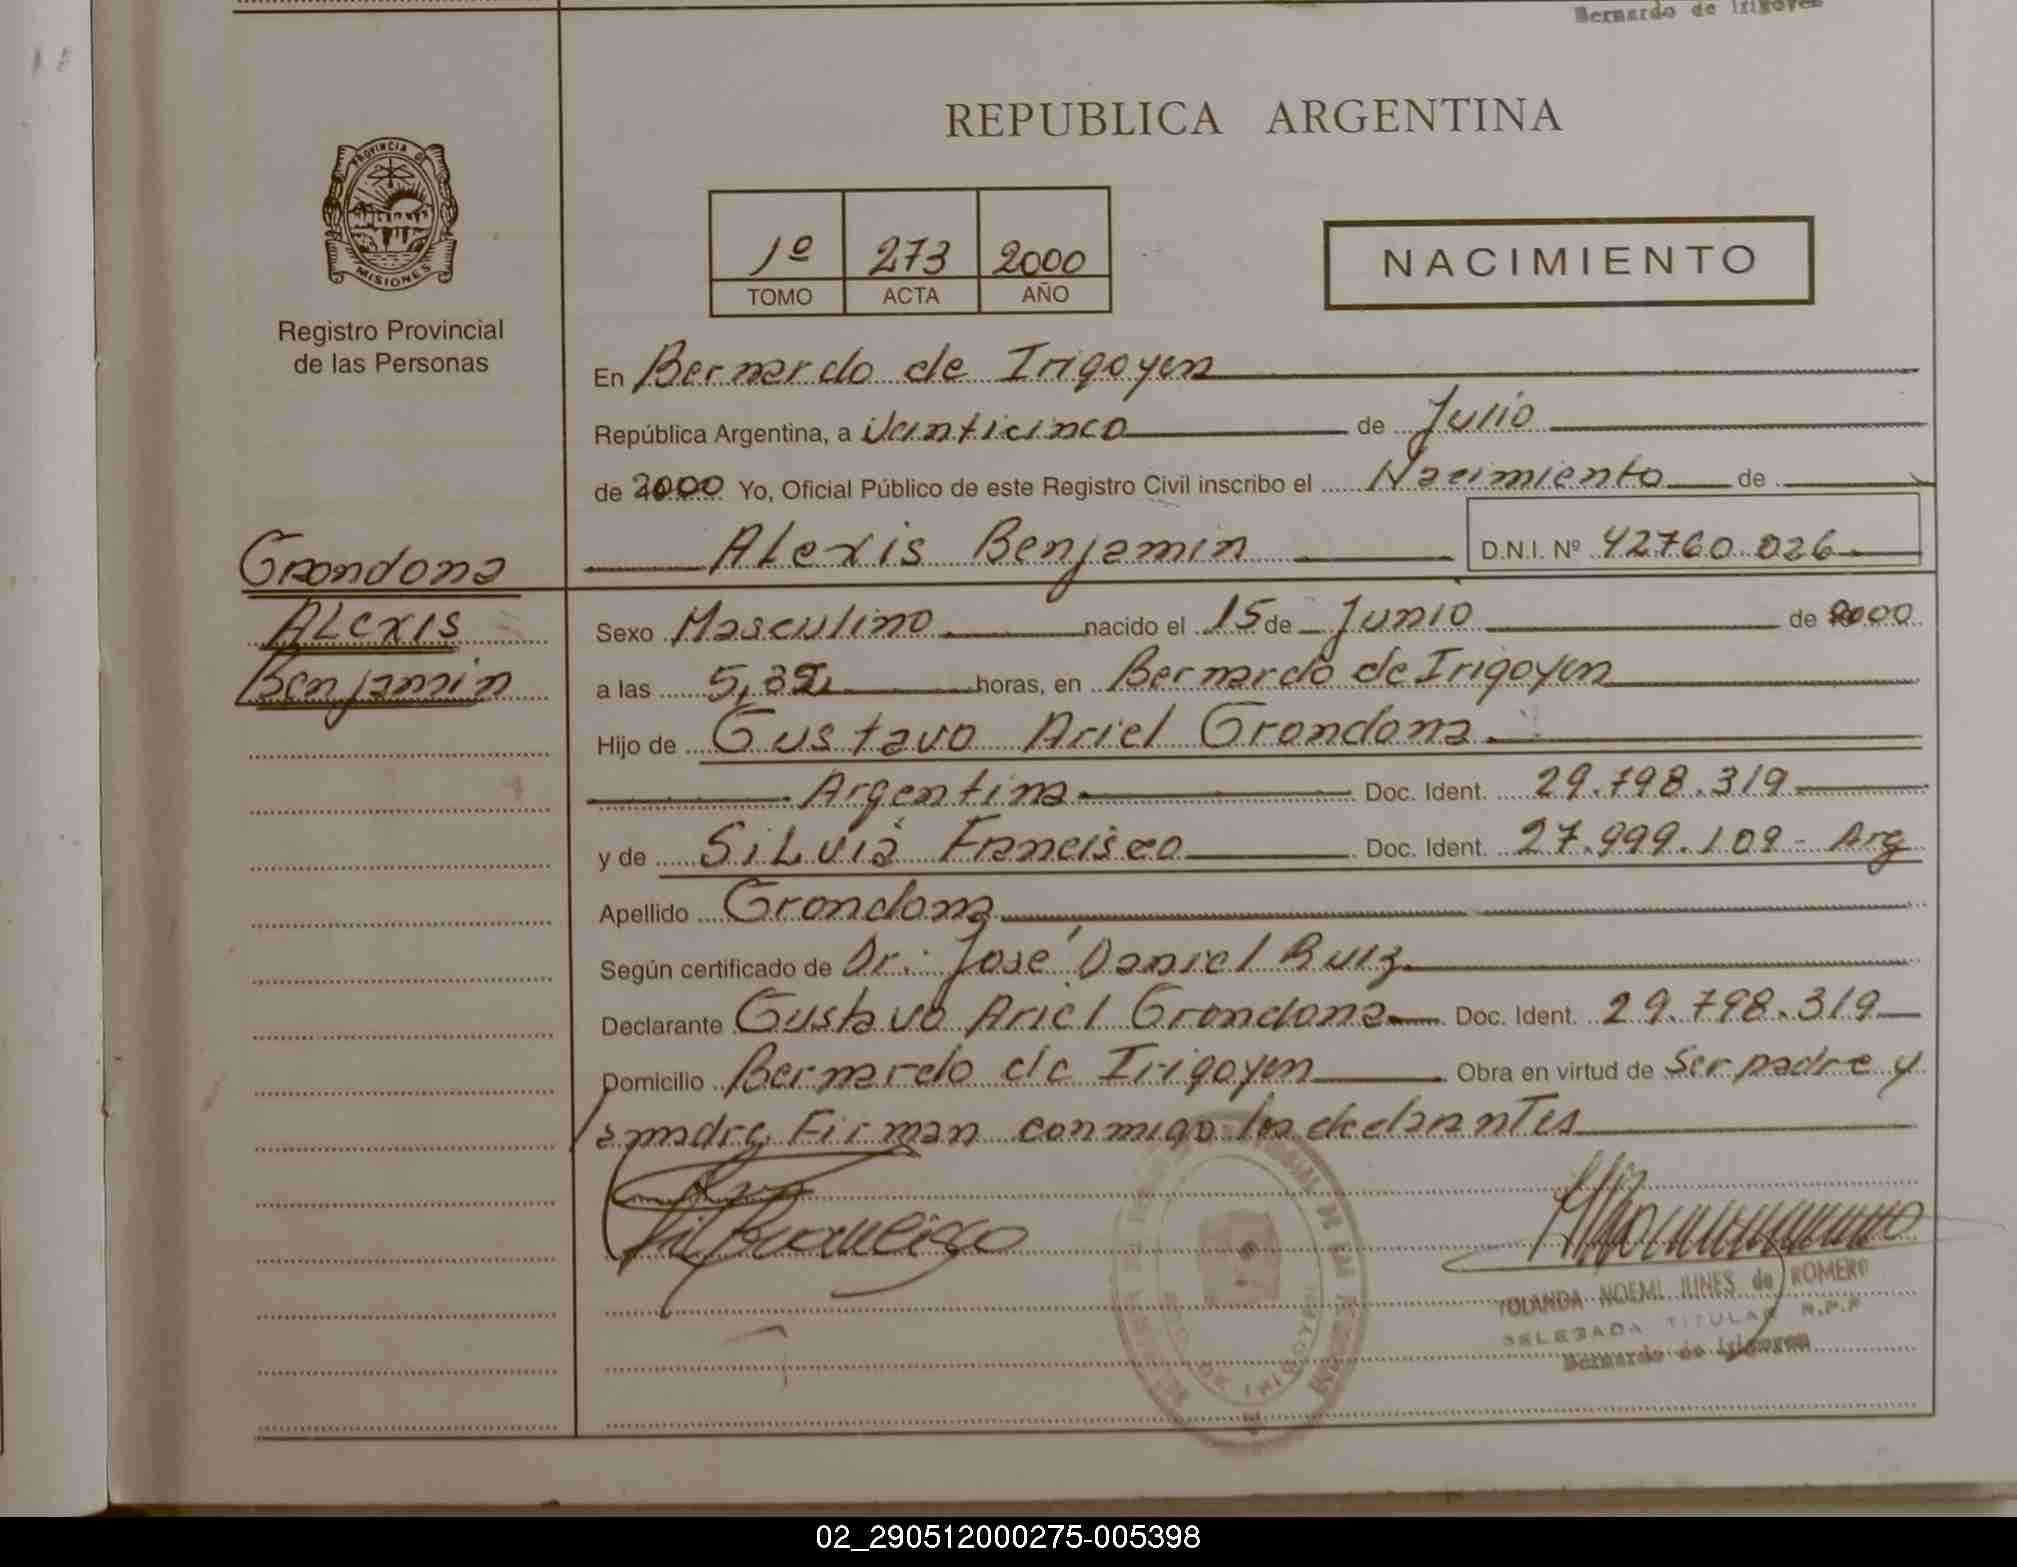 Bernardo de Irigoyen
REPUBLICA ARGENTINA
PROVINCIA DE
MISIONES
Registro Provincial
de las Personas
1º 273 2000
TOMO ACTA AÑO
NACIMIENTO
En Bernardo de Irigoyen
República Argentina, a Veinticinco de Julio
de 2000 Yo, Oficial Público de este Registro Civil inscribo el Nacimiento de
Alexis Benjamin D.N.I. Nº 42760.026
Grondona
Alexis
Benjamin
Sexo Masculino nacido el 15 de Junio de 2000
a las horas, en Bernardo de Irigoyen
Hijo de Gustavo Ariel Grondona
Argentina Doc. Ident. 29.798.319
y de Silvia Francisco Doc. Ident. 27.999.109 - Arg
Apellido Grondona
Según certificado de Dr. José Daniel Ruiz
Declarante Gustavo Ariel Grondona Doc. Ident. 29.798.319
Domicilio Bernardo de Irigoyen Obra en virtud de Ser padre y
madre Firman conmigo los declarantes
YOLANDA NOEMI de ROMERO
DELEGADA TITULAR R.P.P
Bernardo de Irigoyen
02_290512000275-005398